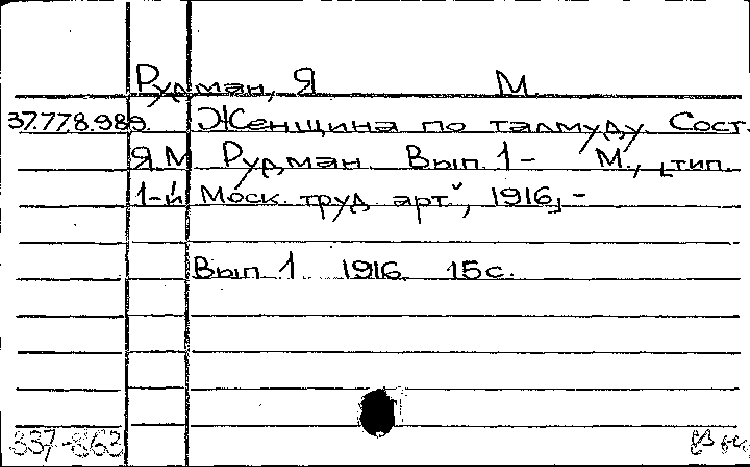 Рудман, Я М.
37.778.989. Женщина по талмуду. Сост.
Я.М. Рудман. Вып. 1- М., [тип.
1-й Моск. труд. арт.", 1916] -
Вып. 1. 1916. 15 с.
337-863